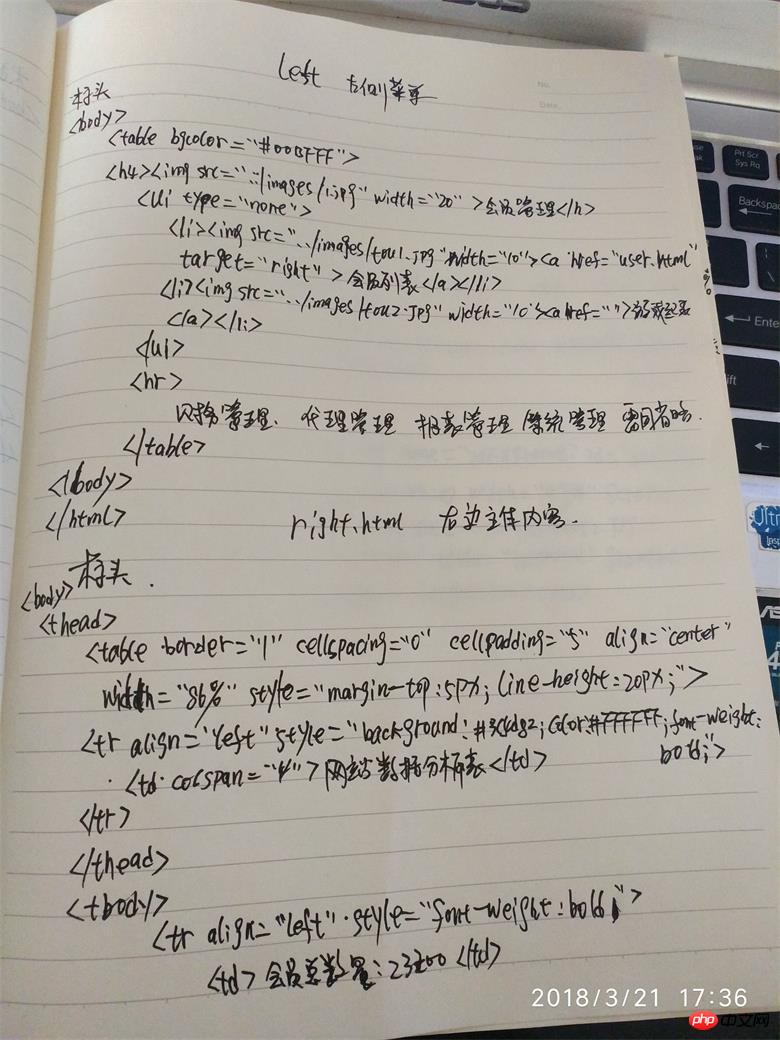 left 左侧菜单
标头
<body>
<table bgcolor="#00BFFF">
<h4><img src="../images/1.jpg" width="20" >会员管理</h>
<ul type="none">
<li><img src="../images/tou1.jpg" width="10"><a href="user.html"
target="right" >会员列表</a></li>
<li><img src="../images/tou2.jpg" width="10"><a href="">
</a></li>
</ul>
<hr>
财务管理、代理管理 报表管理 系统管理 雷同省略.
</table>
</body>
</html>
right.html 右边主体内容.
标头.
<body>
<thead>
<table border="1" cellspacing="0" cellpadding="5" align="center"
width="86%" style="margin-top:5px; line-height:20px;">
<tr align="left" style="background: color:#FFFFFF; font-weight:
bold;">
<td colspan="4">网站数据分析表</td>
</tr>
</thead>
<tbody>
<tr align="left" style="font-weight:bold;">
<td>会员总数量:23200</td>
No.
Date.
Prt Scr
Sys Rq
Backspace
Enter
2018/3/21 17:36
php 中文网